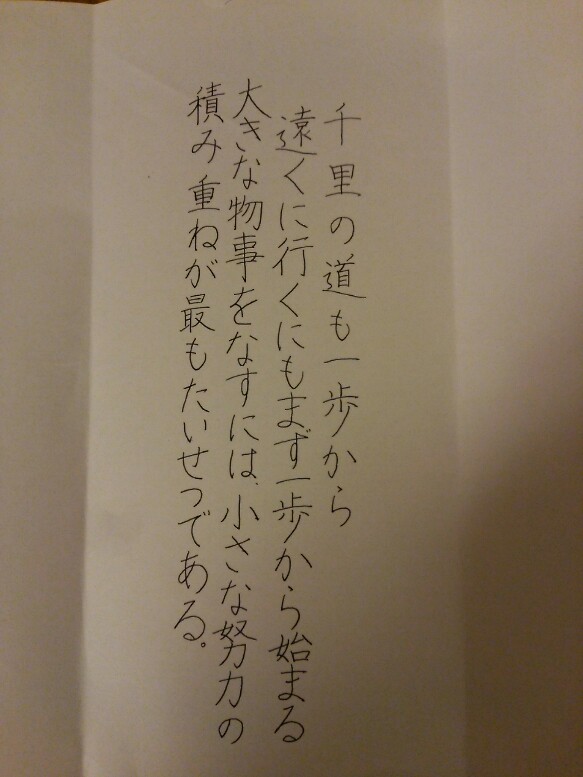 千里の道も一歩から
遠くに行くにもまず一歩から始まる
大きな物事をなすには、小さな努力の
積み重ねが最もたいせつである。